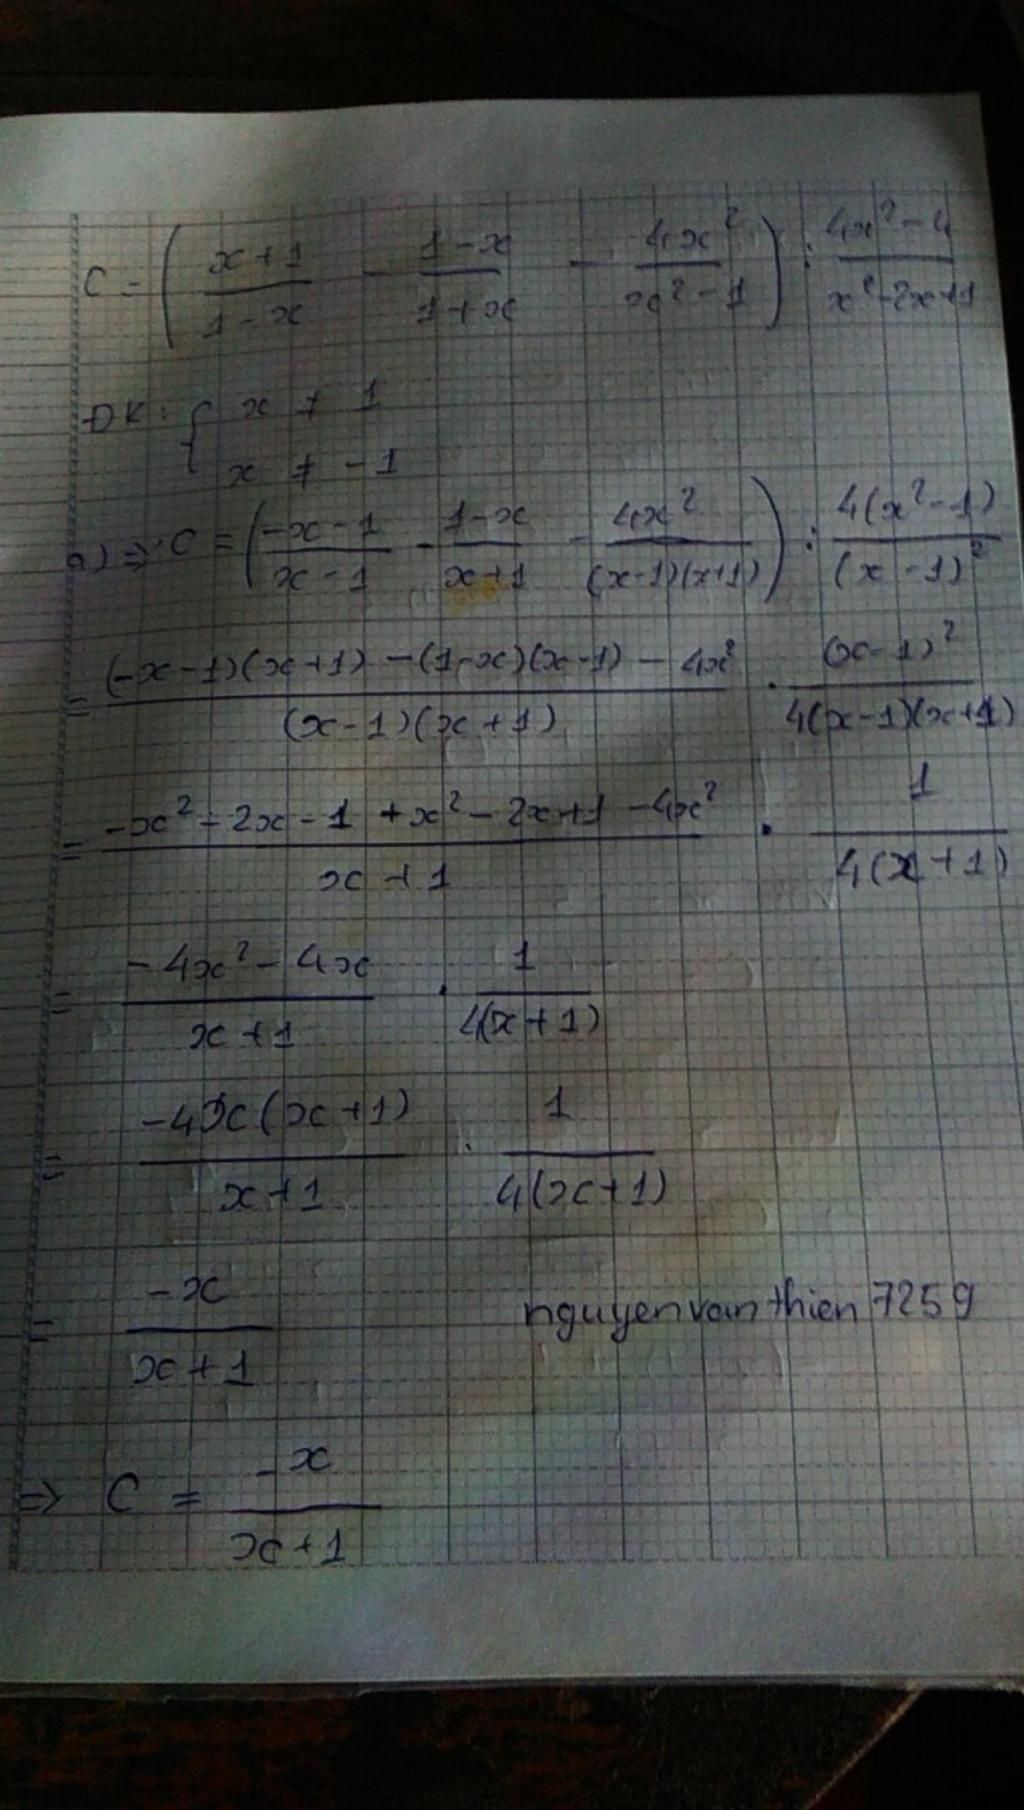 C = ( (x+1)/(1-x) - (1-x)/(1+x) - 4x²/(x²-1) ) : (4x²-4)/(x²-2x+1)
ĐK: { x ≠ 1
x ≠ -1
a) => C = ( (-x-1)/(x-1) - (1-x)/(x+1) - 4x²/((x-1)(x+1)) ) : 4(x²-1)/(x-1)²
= ((-x-1)(x+1) - (1-x)(x-1) - 4x²)/((x-1)(x+1)) . (x-1)²/(4(x-1)(x+1))
= (-x² - 2x - 1 + x² - 2x + 1 - 4x²)/(x+1) . 1/(4(x+1))
= (-4x² - 4x)/(x+1) . 1/(4(x+1))
= (-4x(x+1))/(x+1) . 1/(4(x+1))
= -x/(x+1)
nguyenvanthien7259
=> C = -x/(x+1)